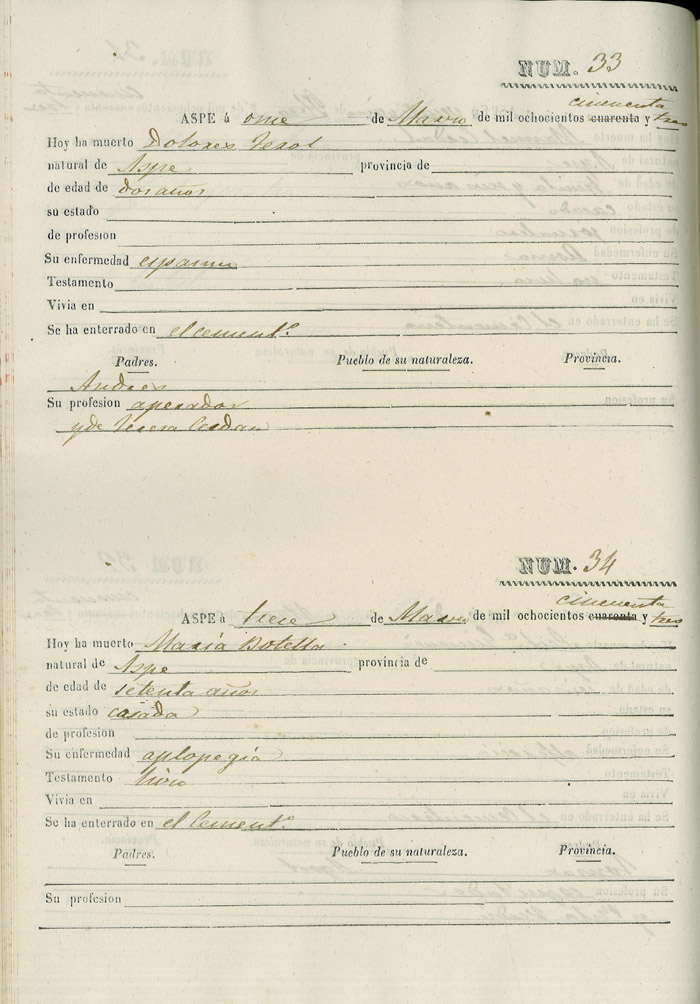 NUM. 33
cincuenta
ASPE á once de Marzo de mil ochocientos cuarenta y tres
Hoy ha muerto Dolores Terol
natural de Aspe provincia de
de edad de dos años
su estado
de profesion
Su enfermedad
Testamento
Vivia en
Se ha enterrado en el cement.º
Padres. Pueblo de su naturaleza. Provincia.
Andres
Su profesion aperador
y de Teresa Cerdan
NUM. 34
cincuenta
ASPE á trece de Marzo de mil ochocientos cuarenta y tres
Hoy ha muerto María Botella
natural de Aspe provincia de
de edad de setenta años
su estado casada
de profesion
Su enfermedad aplopegía
Testamento hizo
Vivia en
Se ha enterrado en el Cement.º
Padres. Pueblo de su naturaleza. Provincia.
Su profesion